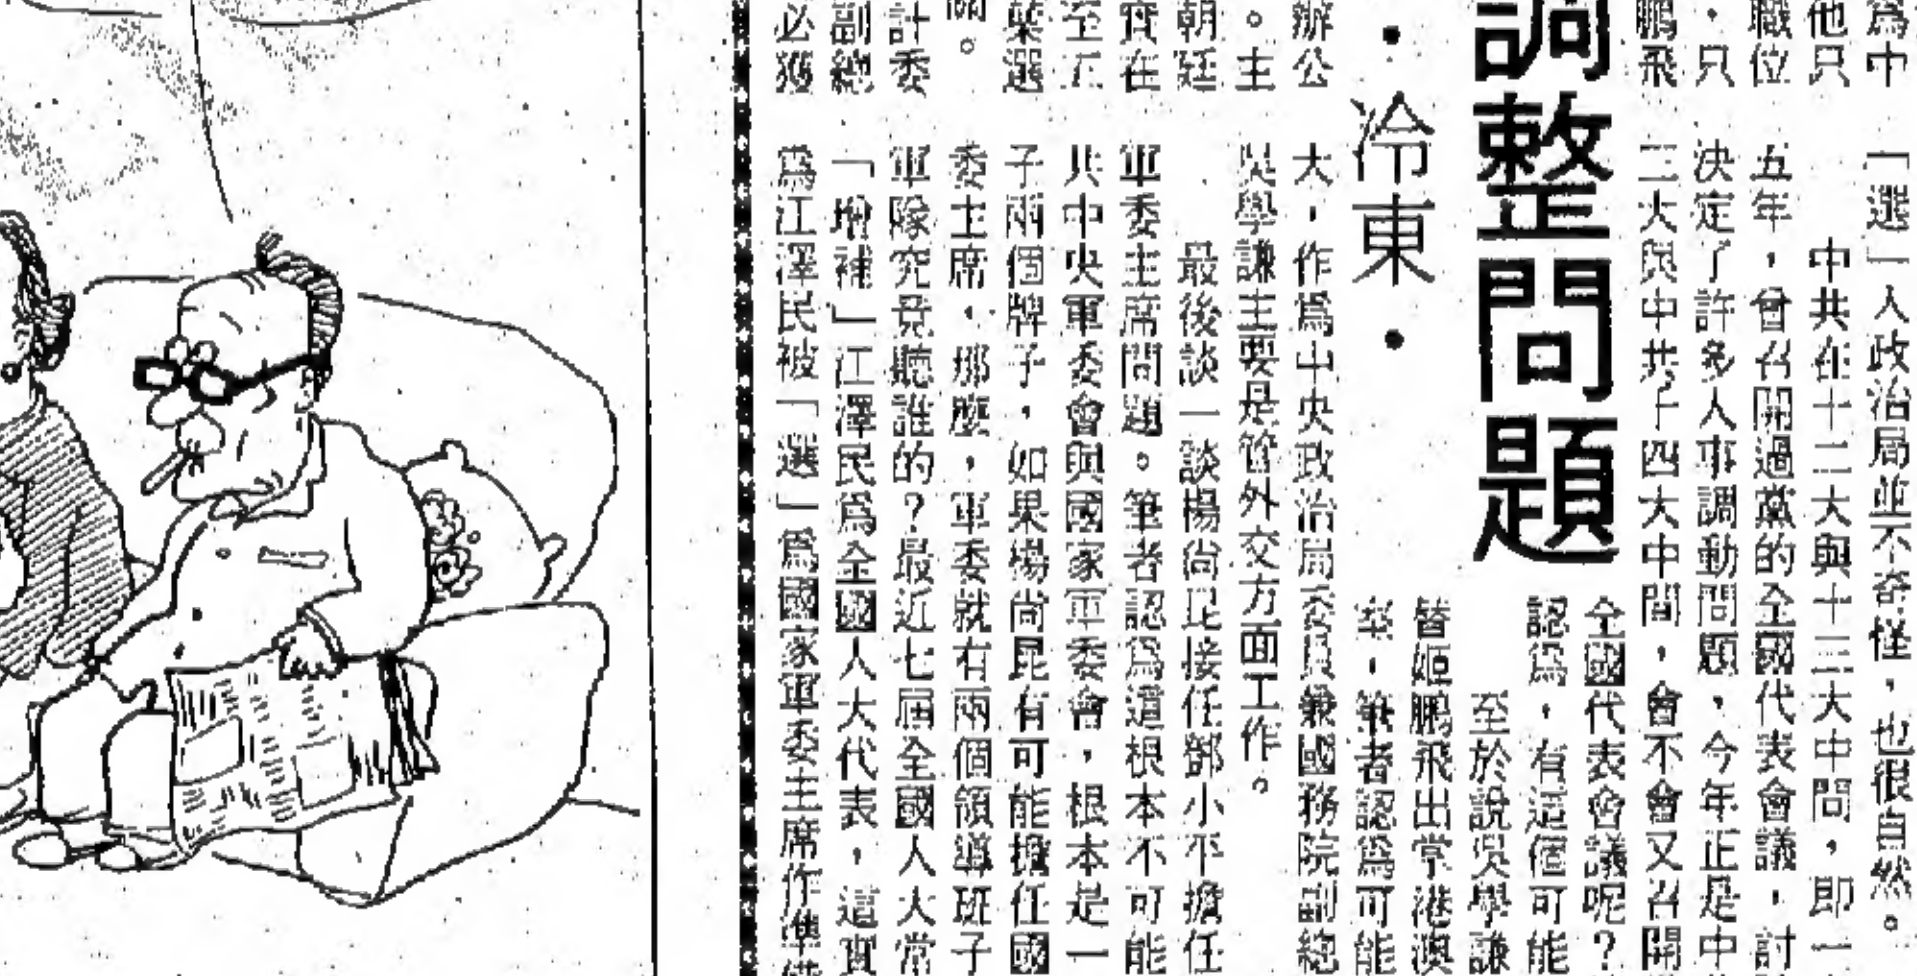 調整問題
·冷東·
爲中
他只
職位
·只
鵬飛
「選」入政治局並不奇怪，也很自然。
中共在十二大與十三大中間，即一
五年，曾召開過黨的全國代表會議，討
決定了許多人事調動問題，今年正是中
三大與中共十四大中間，會不會又召開
全國代表會議呢？
認爲，有這個可能
至於說吳學謙
替姬鵬飛出掌港澳
，筆者認爲可能
辦公
。主
朝廷
實在
至五
葉選
關。
計委
副總
必獲
大，作爲中央政治局委員兼國務院副總
吳學謙主要是管外交方面工作。
最後談一談楊尚昆接任鄧小平擔任
軍委主席問題。筆者認爲這根本不可能
共中央軍委會與國家軍委會，根本是一
子兩個牌子，如果楊尚昆有可能擔任國
委主席，那麼，軍委就有兩個領導班子
軍隊究竟聽誰的？最近七屆全國人大常
「增補」江澤民爲全國人大代表，這實
爲江澤民被「選」爲國家軍委主席作準備